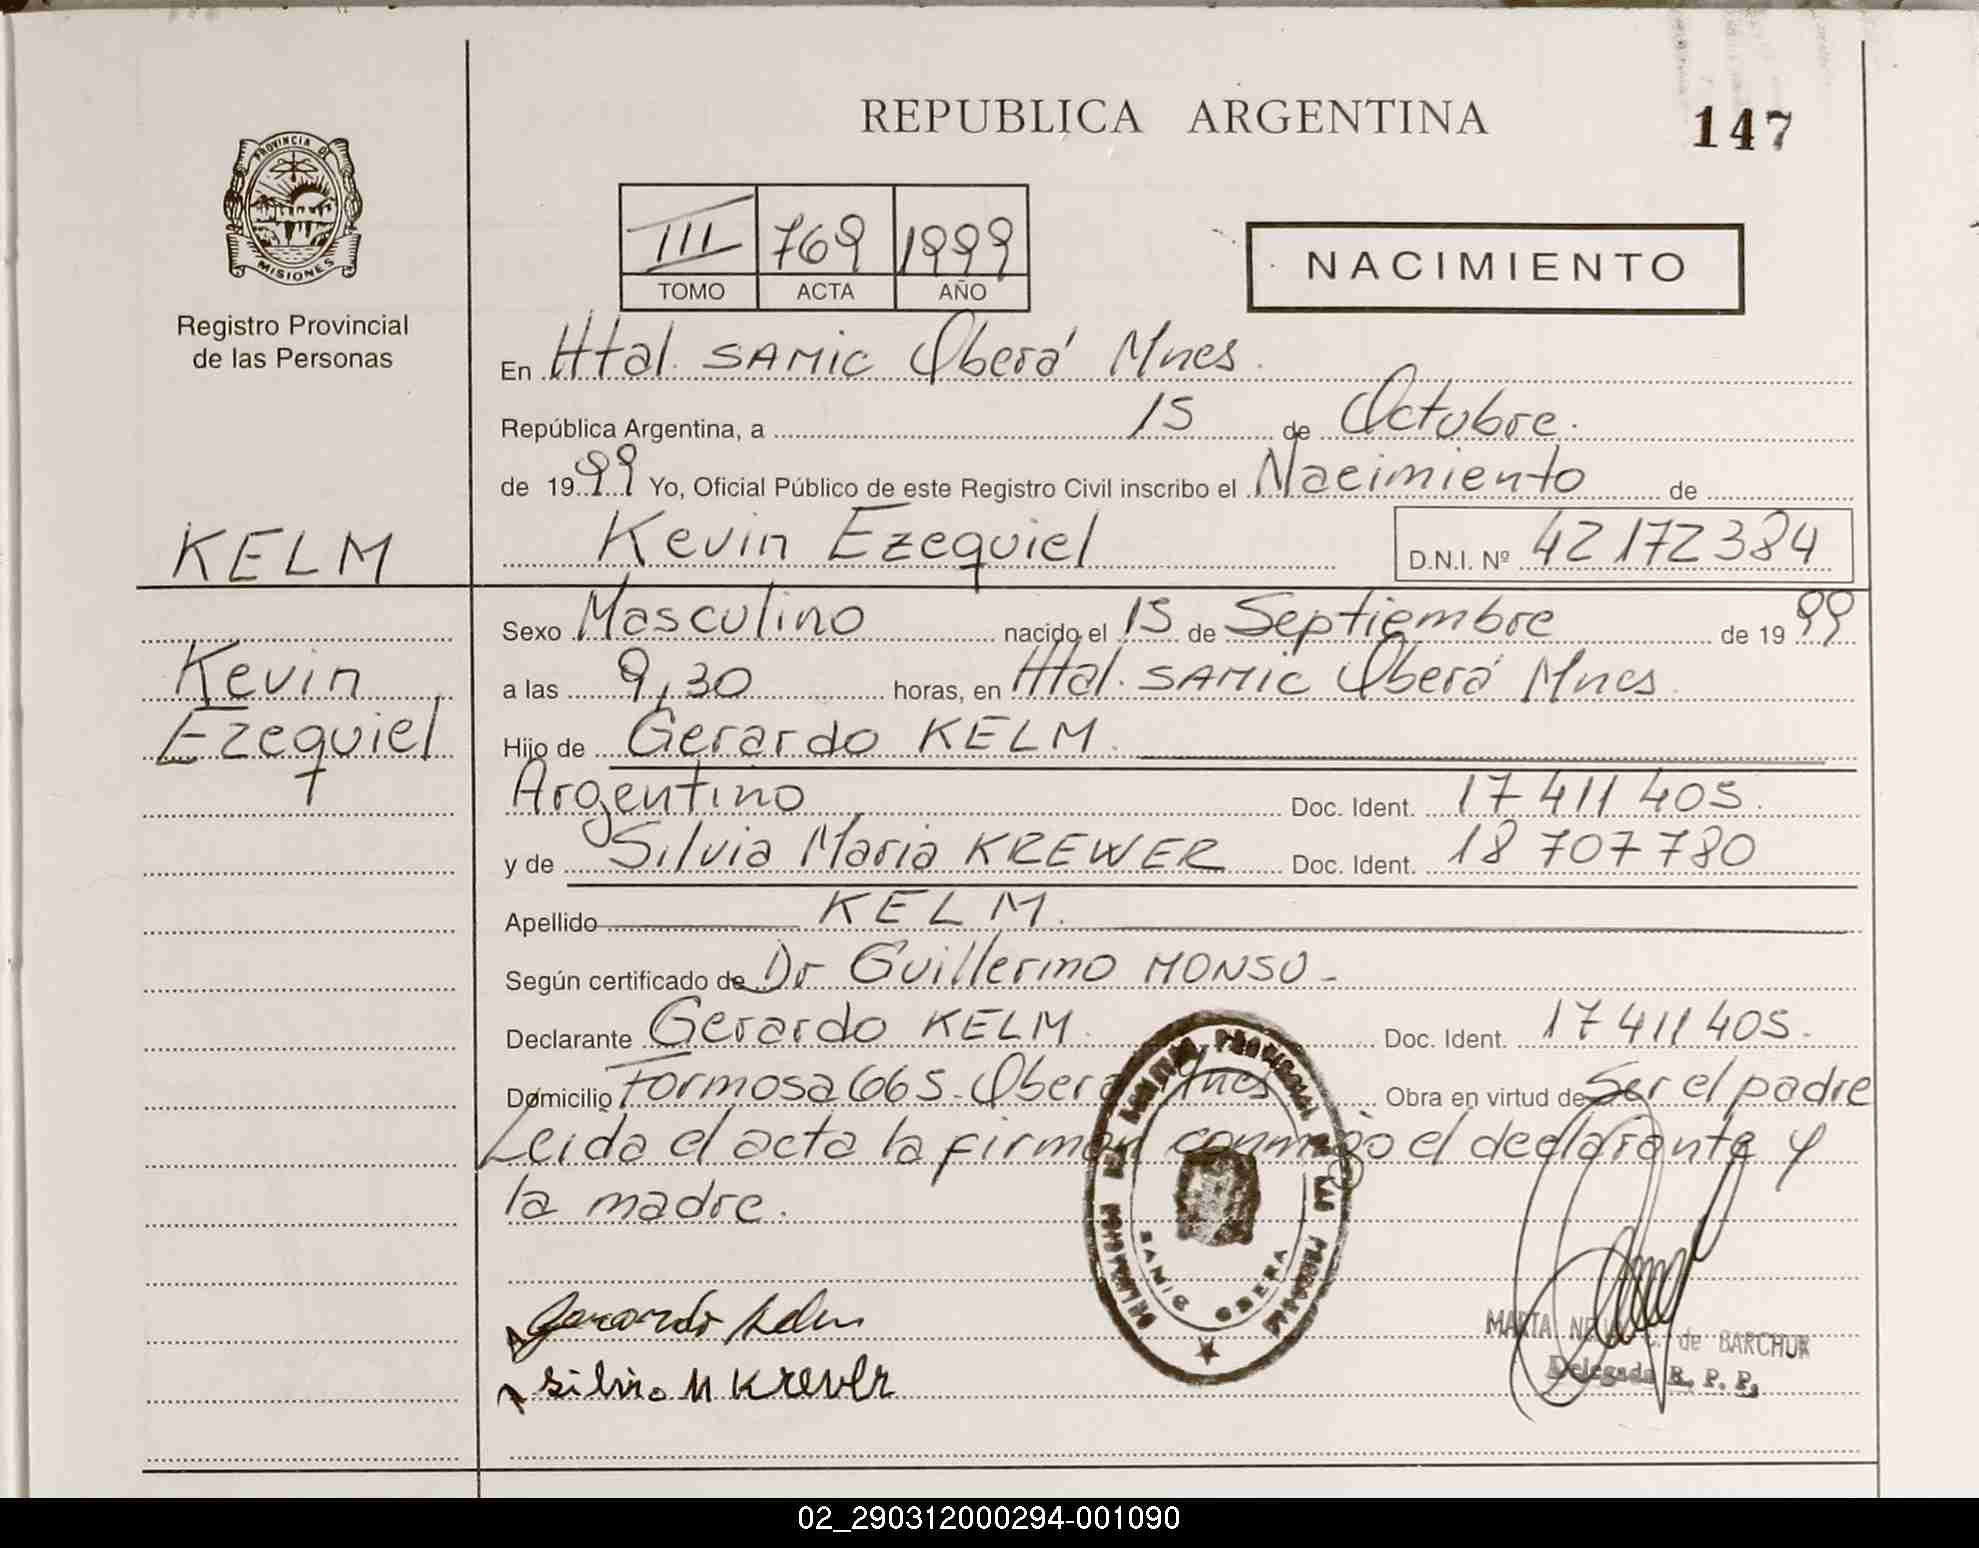 REPUBLICA ARGENTINA
147
PROVINCIA DE
MISIONES
Registro Provincial
de las Personas
III 769 1999
TOMO ACTA AÑO
NACIMIENTO
En Htal. SAMIC Oberá Mnes.
República Argentina, a 15 de Octubre.
de 1999 Yo, Oficial Público de este Registro Civil inscribo el Nacimiento de
Kevin Ezequiel D.N.I. Nº 42172384
KELM
Kevin
Ezequiel
Sexo Masculino nacido el 15 de Septiembre de 1999
a las 9,30 horas, en Htal. SAMIC Oberá Mnes.
Hijo de Gerardo KELM.
Argentino Doc. Ident. 17 411 405.
y de Silvia Maria KREWER Doc. Ident. 18 707 780
Apellido KELM.
Según certificado de Dr Guillermo MONSU -
Declarante Gerardo KELM. Doc. Ident. 17 411 405.
Domicilio Formosa 665 - Oberá Mnes Obra en virtud de Ser el padre
Leida el acta la firman conmigo el declarante y
la madre.
SAMIC OBERA
Gerardo Kelm
Silvia M Krewer
MARTA de BARCHUK
Delegada R. P. P.
02_290312000294-001090